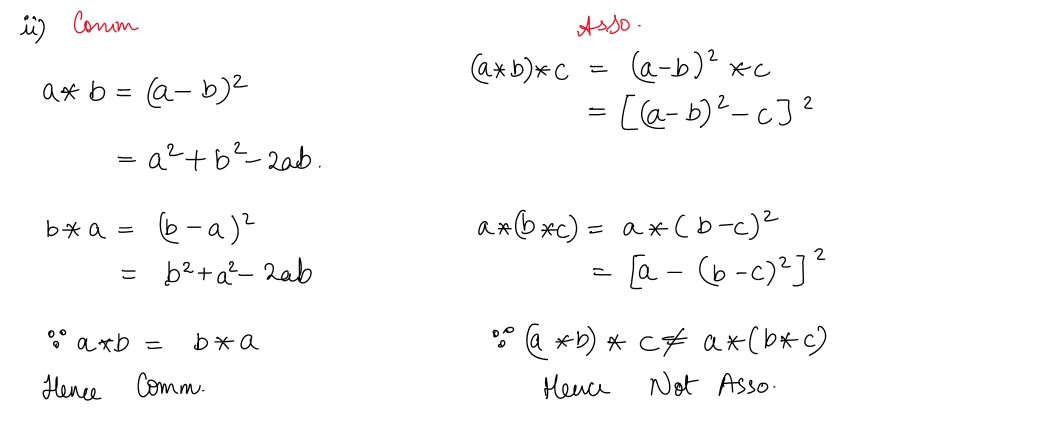 ii) Comm
a * b = (a - b)²
= a² + b² - 2ab.
b * a = (b - a)²
= b² + a² - 2ab
∵ a * b = b * a
Hence Comm.
Asso.
(a * b) * c = (a - b)² * c
= [(a - b)² - c]²
a * (b * c) = a * (b - c)²
= [a - (b - c)²]²
∵ (a * b) * c ≠ a * (b * c)
Hence Not Asso.